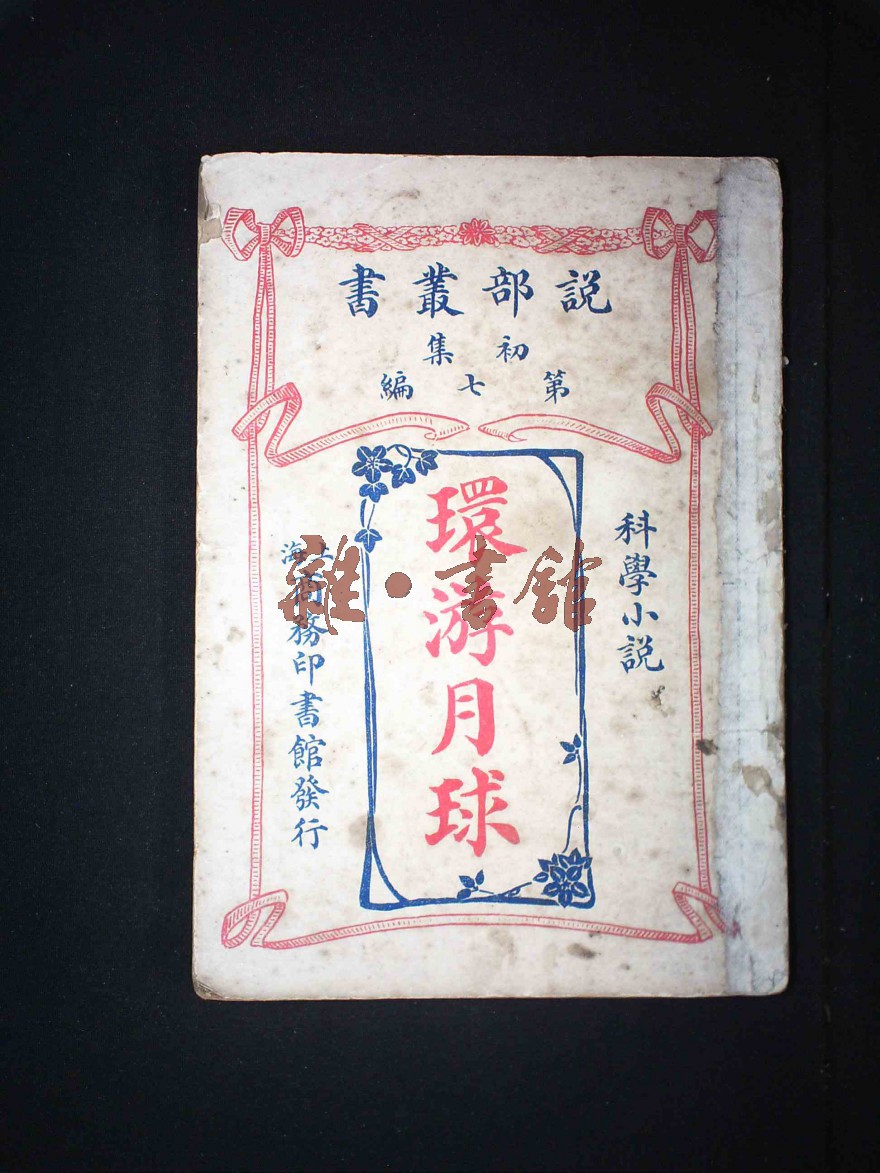 説部叢書
初集
第七編
科學小説
環游月球
上海商務印書館發行
雜·書館